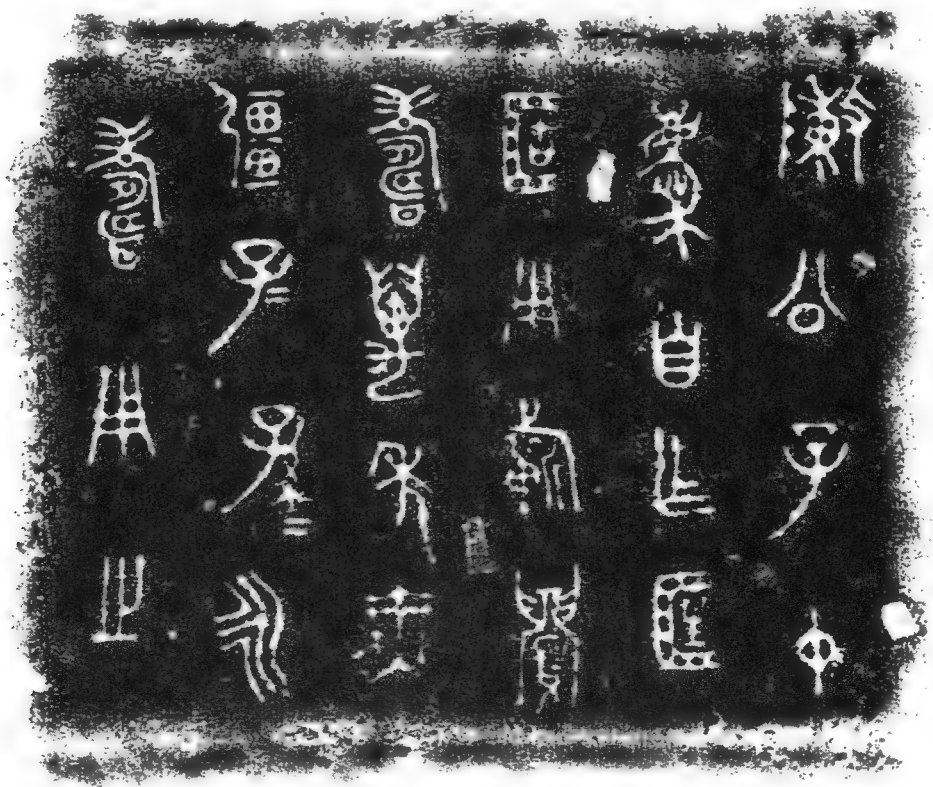 敶公子中
慶自乍匡
𠤳用祈眉
壽萬年無
疆子=孫=永
壽用之